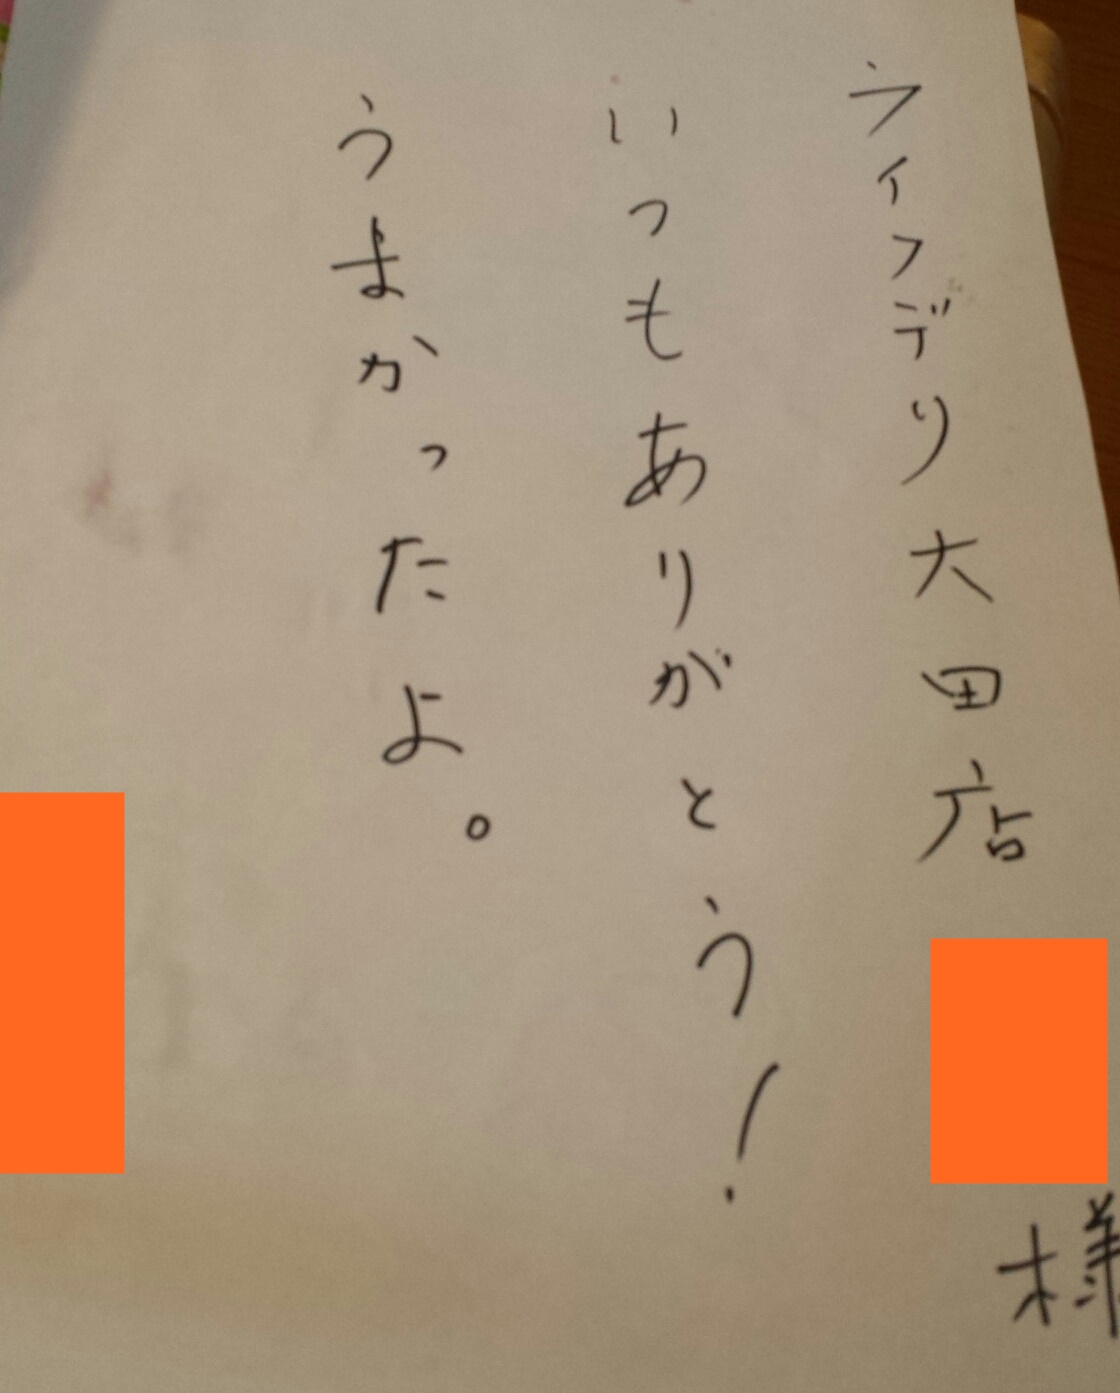 ライフデリ大田店
様
いつもありがとう!
うまかったよ。